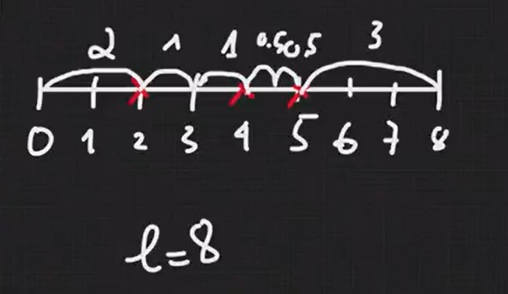 2 1 1 0.5 0.5 3
0 1 2 3 4 5 6 7 8
l=8